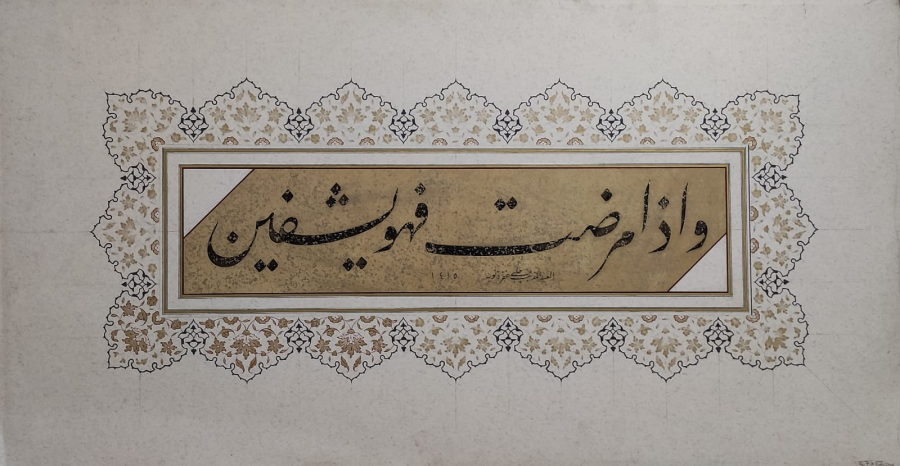 واذا مرضت فهو يشفين
١٤١٥